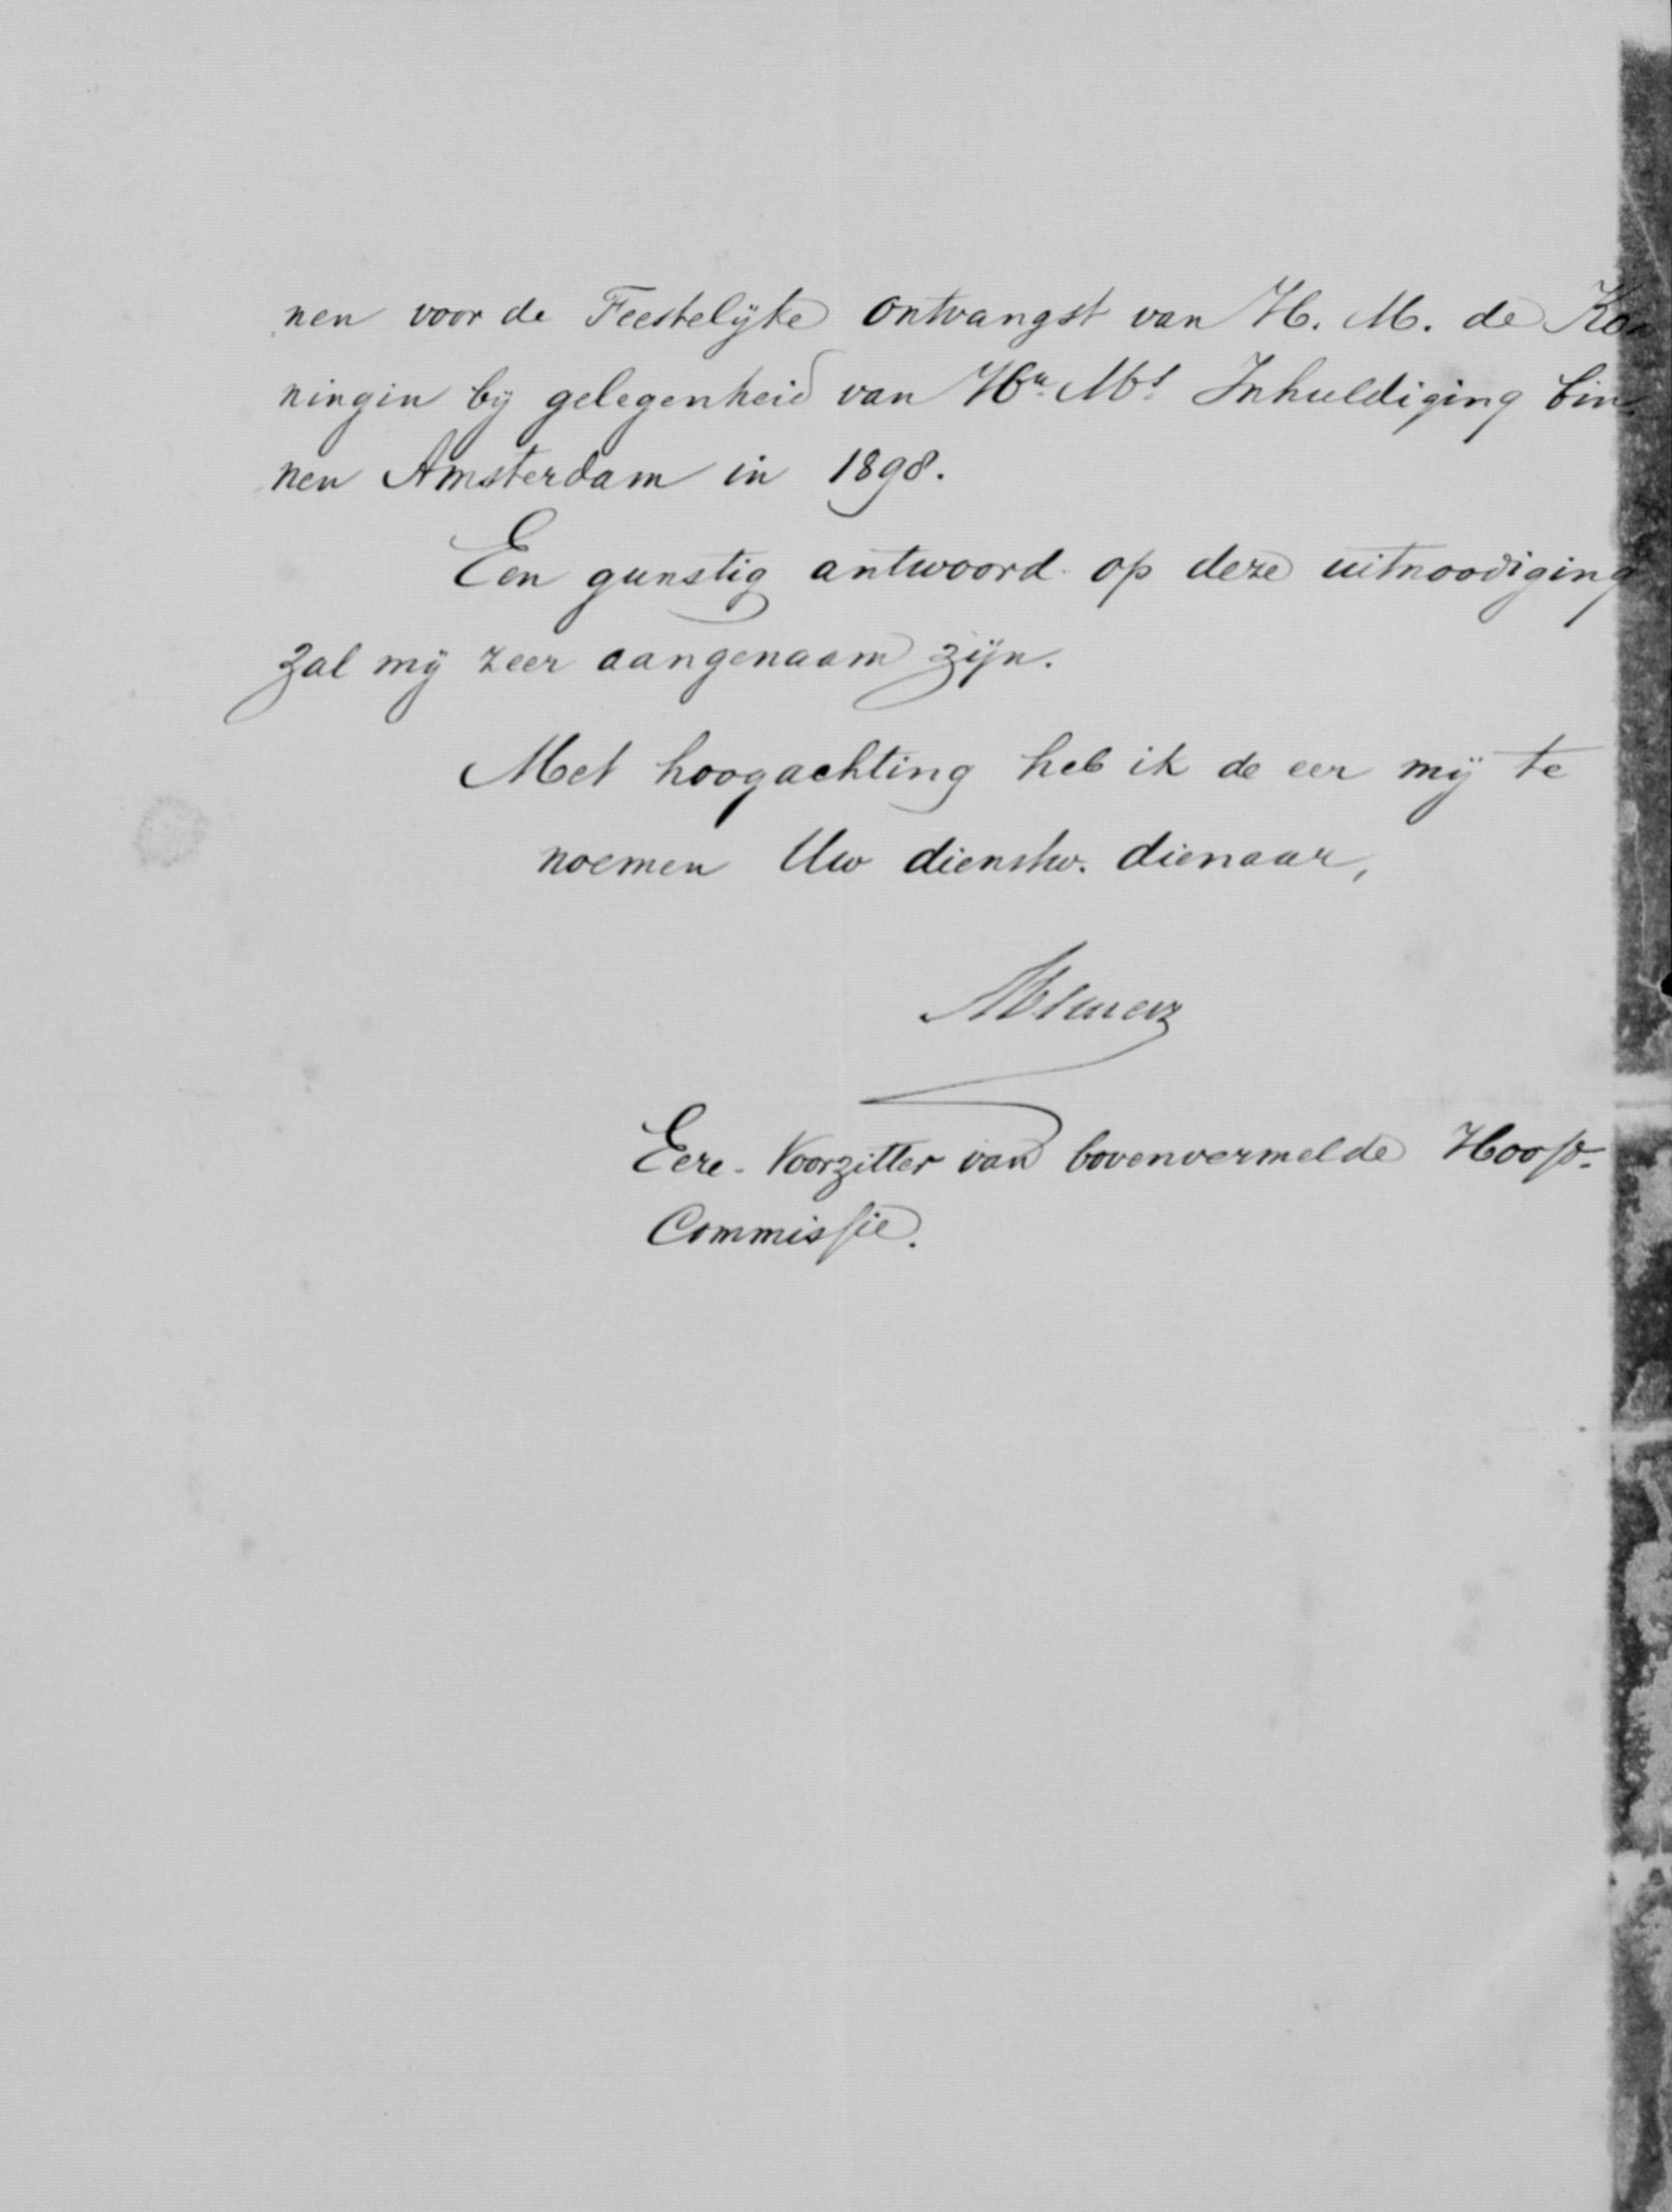 nen voor de Feestelijke ontvangst van H. M. de Ko
ningin bij gelegenheid van Hr. Ms. Inhuldiging bin
nen Amsterdam in 1898.
Een gunstig antwoord op deze uitnoodiging
zal mij zeer aangenaam zijn.
Met hoogachting heb ik de eer mij te
noemen Uw dienstw. dienaar,
Eere-Voorzitter van bovenvermelde Hoofd-
Commissie.